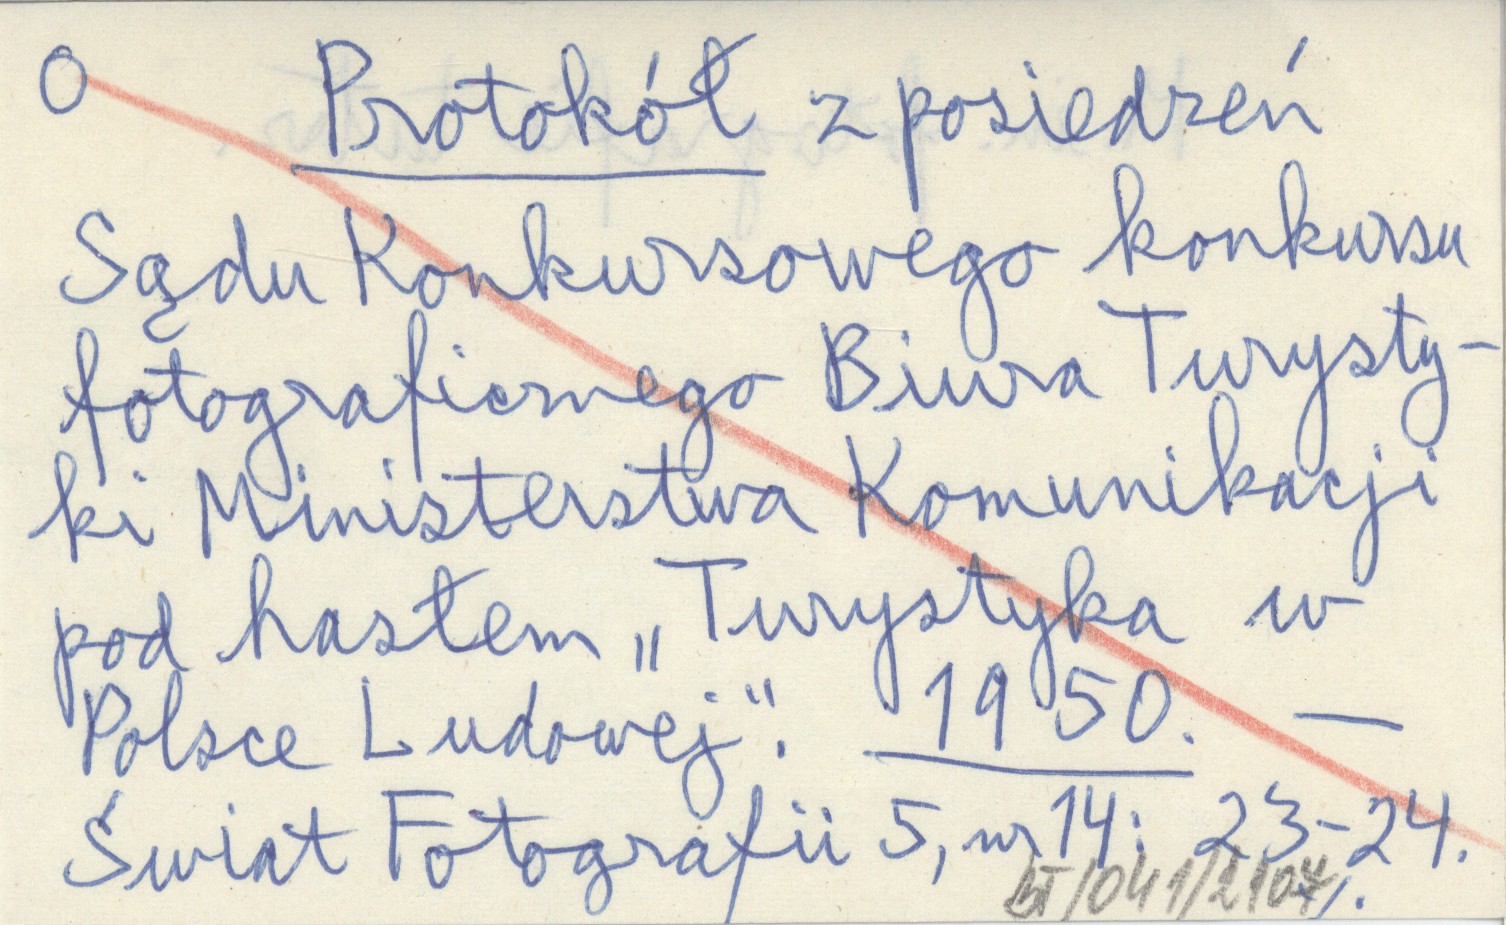 O Protokół z posiedzeń
Sądu Konkursowego konkursu
fotograficznego Biura Turysty-
ki Ministerstwa Komunikacji
pod hasłem „Turystyka w
Polsce Ludowej". 1950. —
Świat Fotografii 5, nr 14: 23-24.